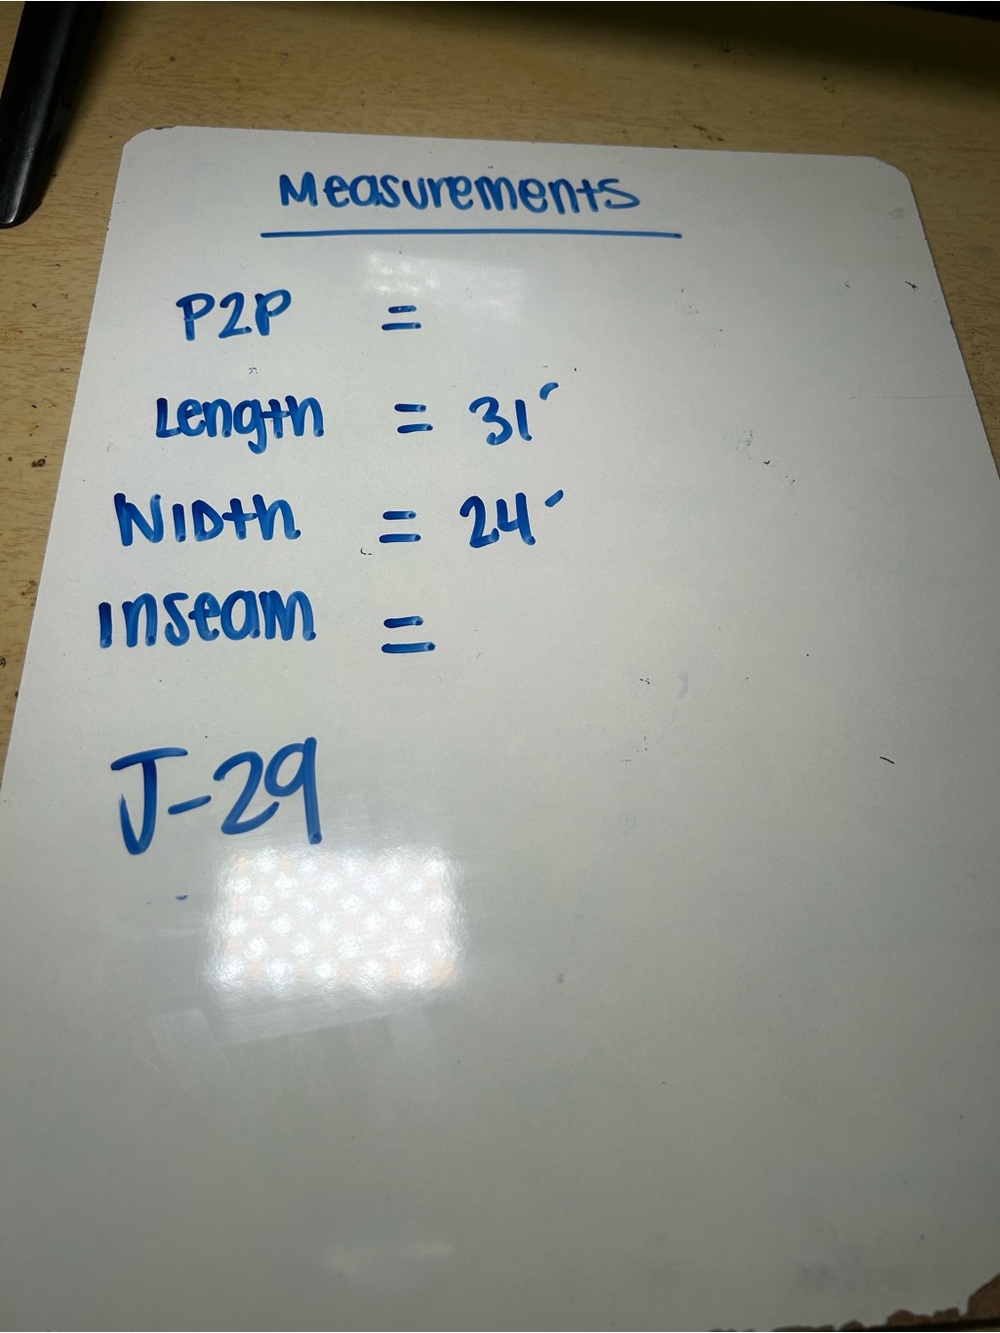 Measurements
P2P =
Length = 31'
WIDth = 24'
Inseam =
J-29